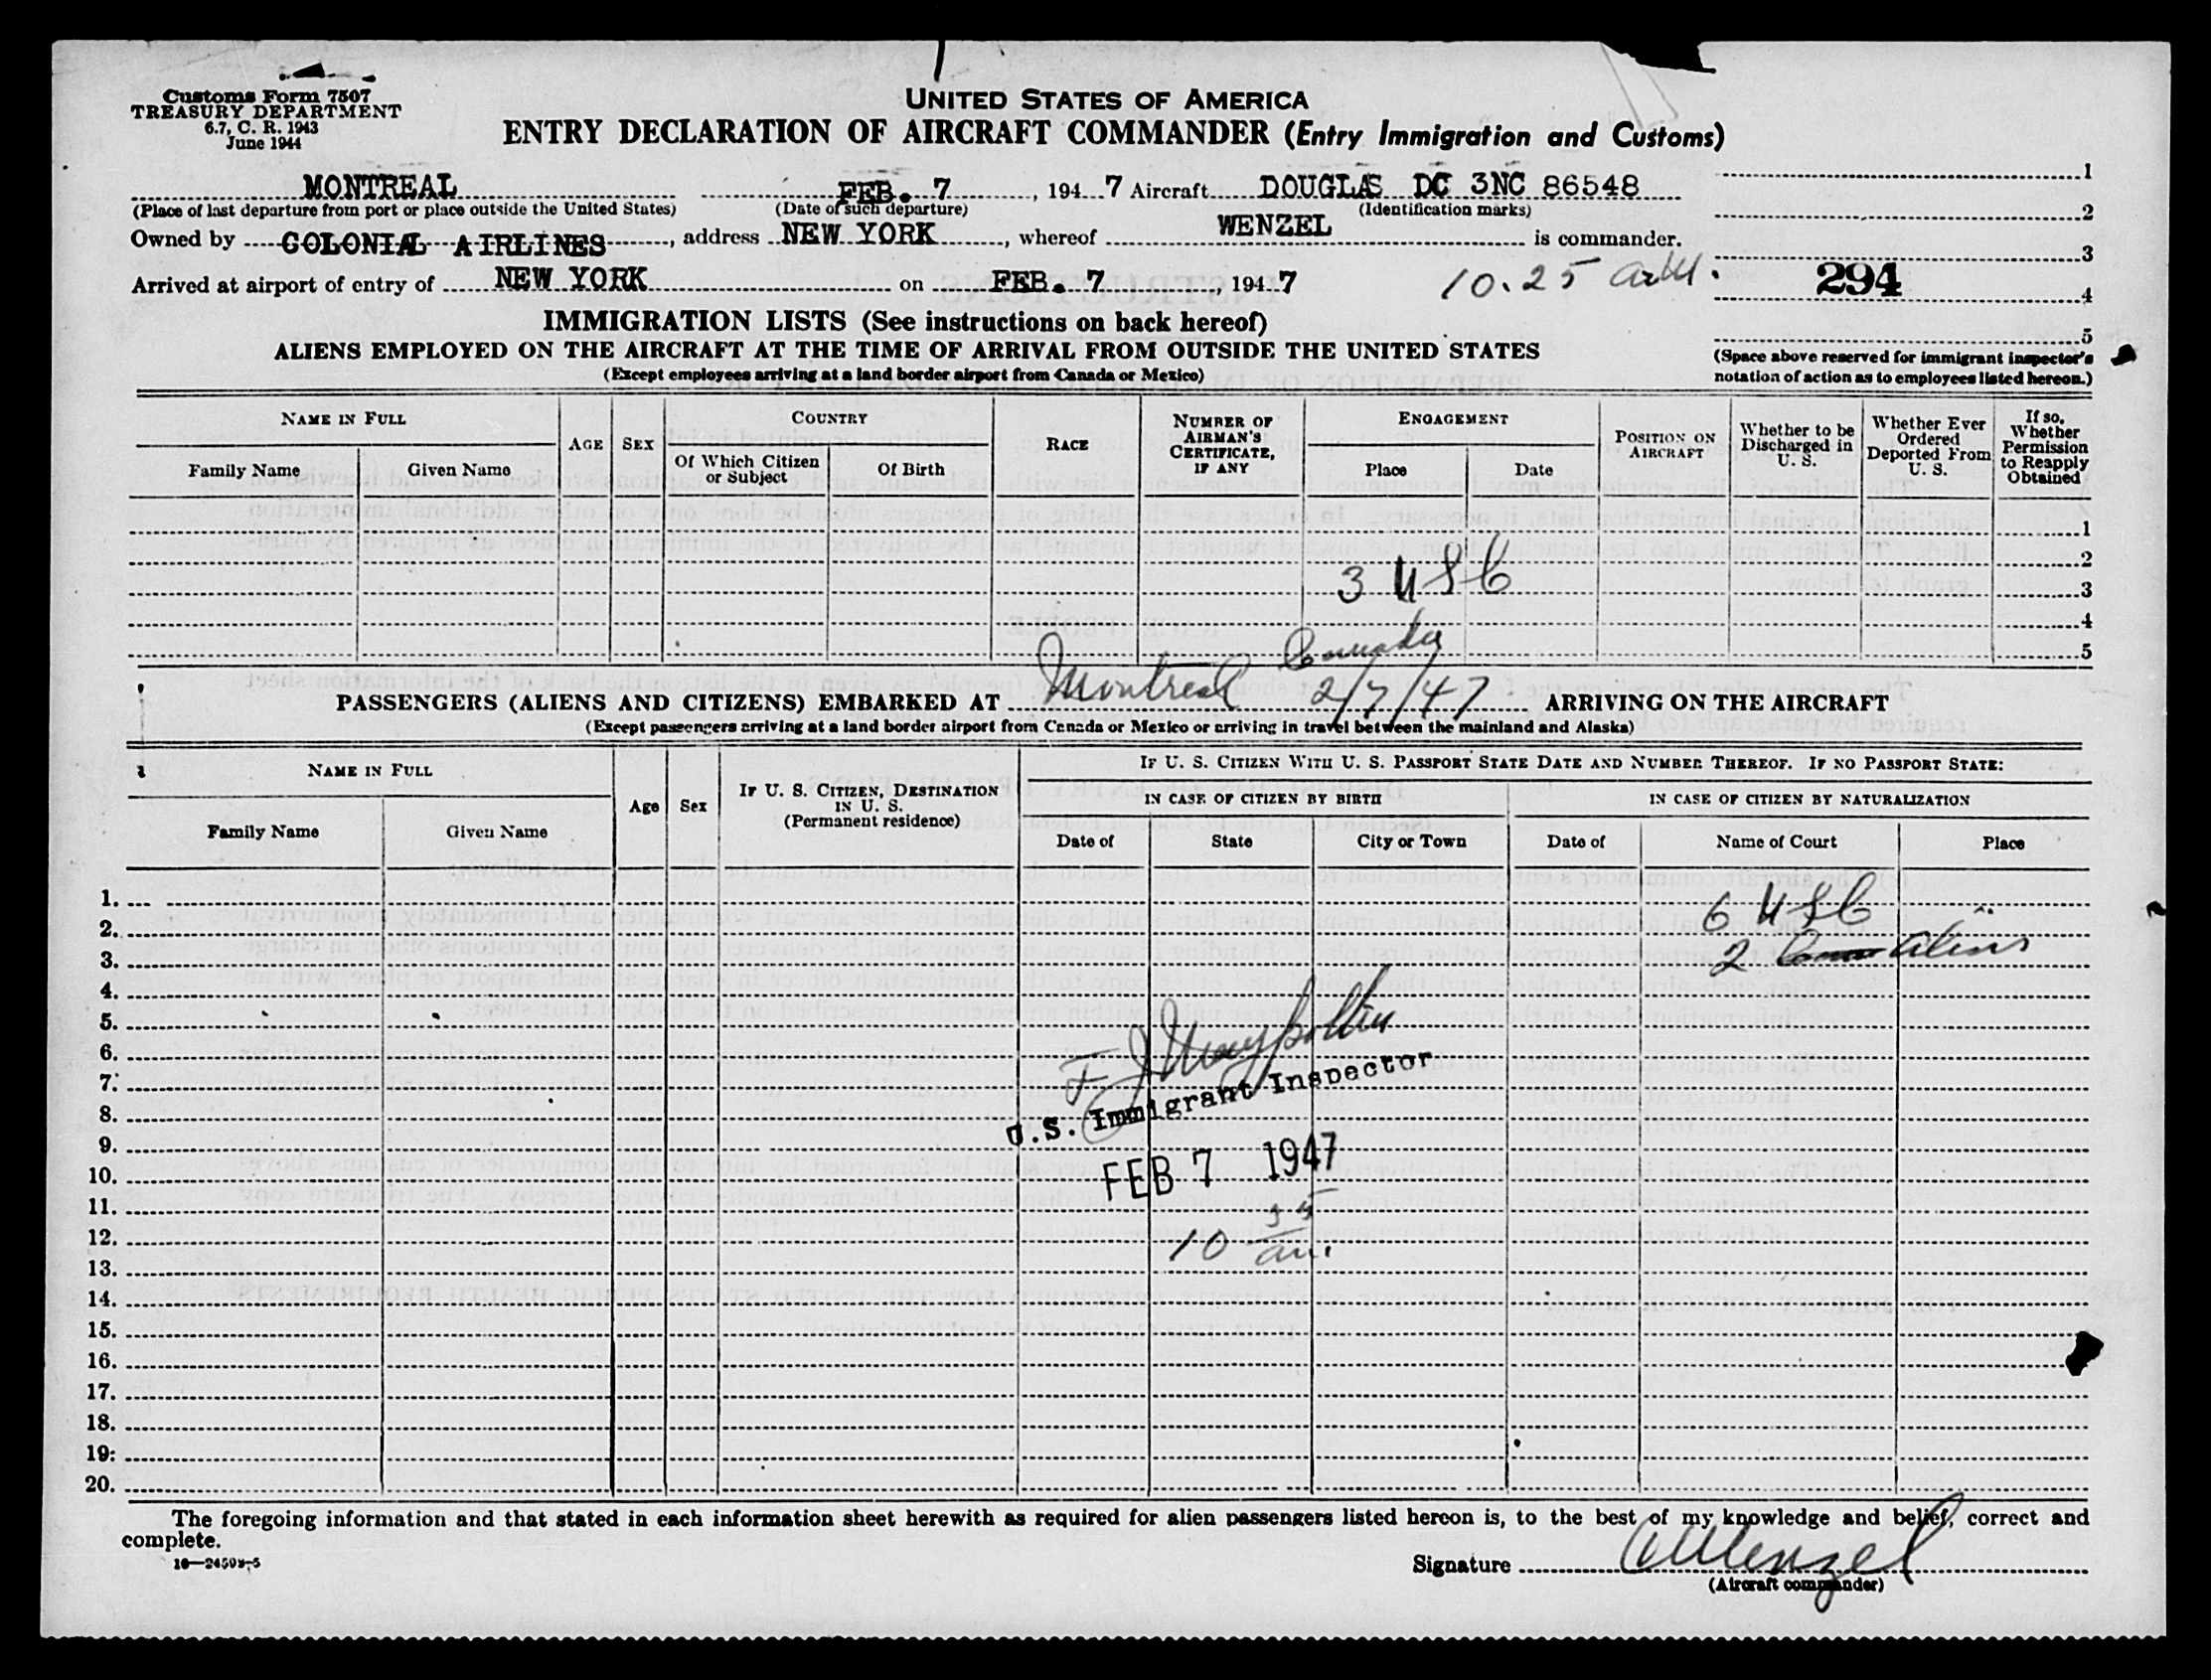 Customs Form 7507
TREASURY DEPARTMENT
6.7, C. R. 1943
June 1944
UNITED STATES OF AMERICA
ENTRY DECLARATION OF AIRCRAFT COMMANDER (Entry Immigration and Customs)
MONTREAL FEB. 7, 1947 Aircraft DOUGLAS DC 3NC 86548
(Place of last departure from port or place outside the United States) (Date of such departure) (Identification marks)
Owned by COLONIAL AIRLINES, address NEW YORK, whereof WENZEL is commander.
Arrived at airport of entry of NEW YORK on FEB. 7, 1947 10.25 a.M.
1
2
3
294
4
5
(Space above reserved for immigrant inspector's notation of action as to employees listed hereon.)
IMMIGRATION LISTS (See instructions on back hereof)
ALIENS EMPLOYED ON THE AIRCRAFT AT THE TIME OF ARRIVAL FROM OUTSIDE THE UNITED STATES
(Except employees arriving at a land border airport from Canada or Mexico)
NAME IN FULL
Family Name Given Name
AGE
SEX
COUNTRY
Of Which Citizen or Subject
Of Birth
RACE
NUMBER OF AIRMAN'S CERTIFICATE, IF ANY
ENGAGEMENT
Place Date
POSITION ON AIRCRAFT
Whether to be Discharged in U. S.
Whether Ever Ordered Deported From U. S.
If so, Whether Permission to Reapply Obtained
1
2
3 USC
3
4
5
Canada
PASSENGERS (ALIENS AND CITIZENS) EMBARKED AT Montreal 2/7/47 ARRIVING ON THE AIRCRAFT
(Except passengers arriving at a land border airport from Canada or Mexico or arriving in travel between the mainland and Alaska)
NAME IN FULL
Family Name Given Name
Age
Sex
IF U. S. CITIZEN, DESTINATION IN U. S.
(Permanent residence)
IF U. S. CITIZEN WITH U. S. PASSPORT STATE DATE AND NUMBER THEREOF. IF NO PASSPORT STATE:
IN CASE OF CITIZEN BY BIRTH
Date of State City or Town
IN CASE OF CITIZEN BY NATURALIZATION
Date of Name of Court Place
1.
6 USC
2.
2 aliens
3.
4.
5.
6.
7.
U.S. Immigrant Inspector
8.
9.
FEB 7 1947
10.
11.
10 35 am.
12.
13.
14.
15.
16.
17.
18.
19.
20.
The foregoing information and that stated in each information sheet herewith as required for alien passengers listed hereon is, to the best of my knowledge and belief, correct and
complete.
Signature Wenzel
(Aircraft commander)